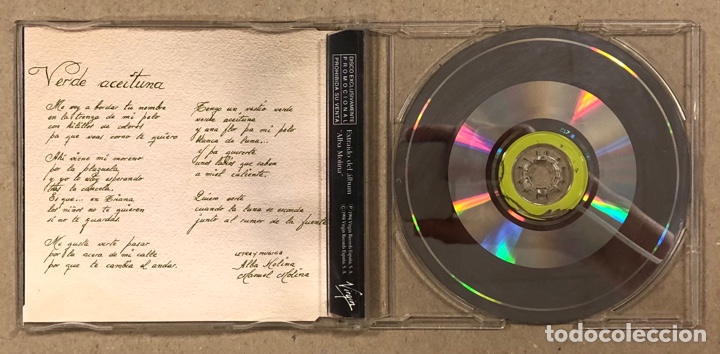 Verde aceituna
Me voy a bordar tu nombre
en la trenza de mi pelo
con hilillos de colores
pa que veas como te quiero
Ahí viene mi moreno
por la plazuela
y yo lo estoy esperando
tras la cancela.
Es que... en Triana
los niños no te quieren
si no te guardas.
Me gusta verte pasar
por la acera de mi calle
por que te cambia el andar.
Tengo un vestío verde
verde aceituna
y una flor pa mi pelo
blanca de luna...
y pa quererte
unos labios que saben
a miel caliente.
Quiero verte
cuando la luna se esconda
junto al rumor de la fuente
LETRA y MUSICA
Alba Molina
Manuel Molina
DISCO EXCLUSIVAMENTE
PROMOCIONAL
PROHIBIDA SU VENTA
Extraído del álbum
"Alba Molina"
℗ 1996 Virgin Records España, S.A.
© 1996 Virgin Records España, S.A.
Virgin
todocoleccion
todocoleccion.net